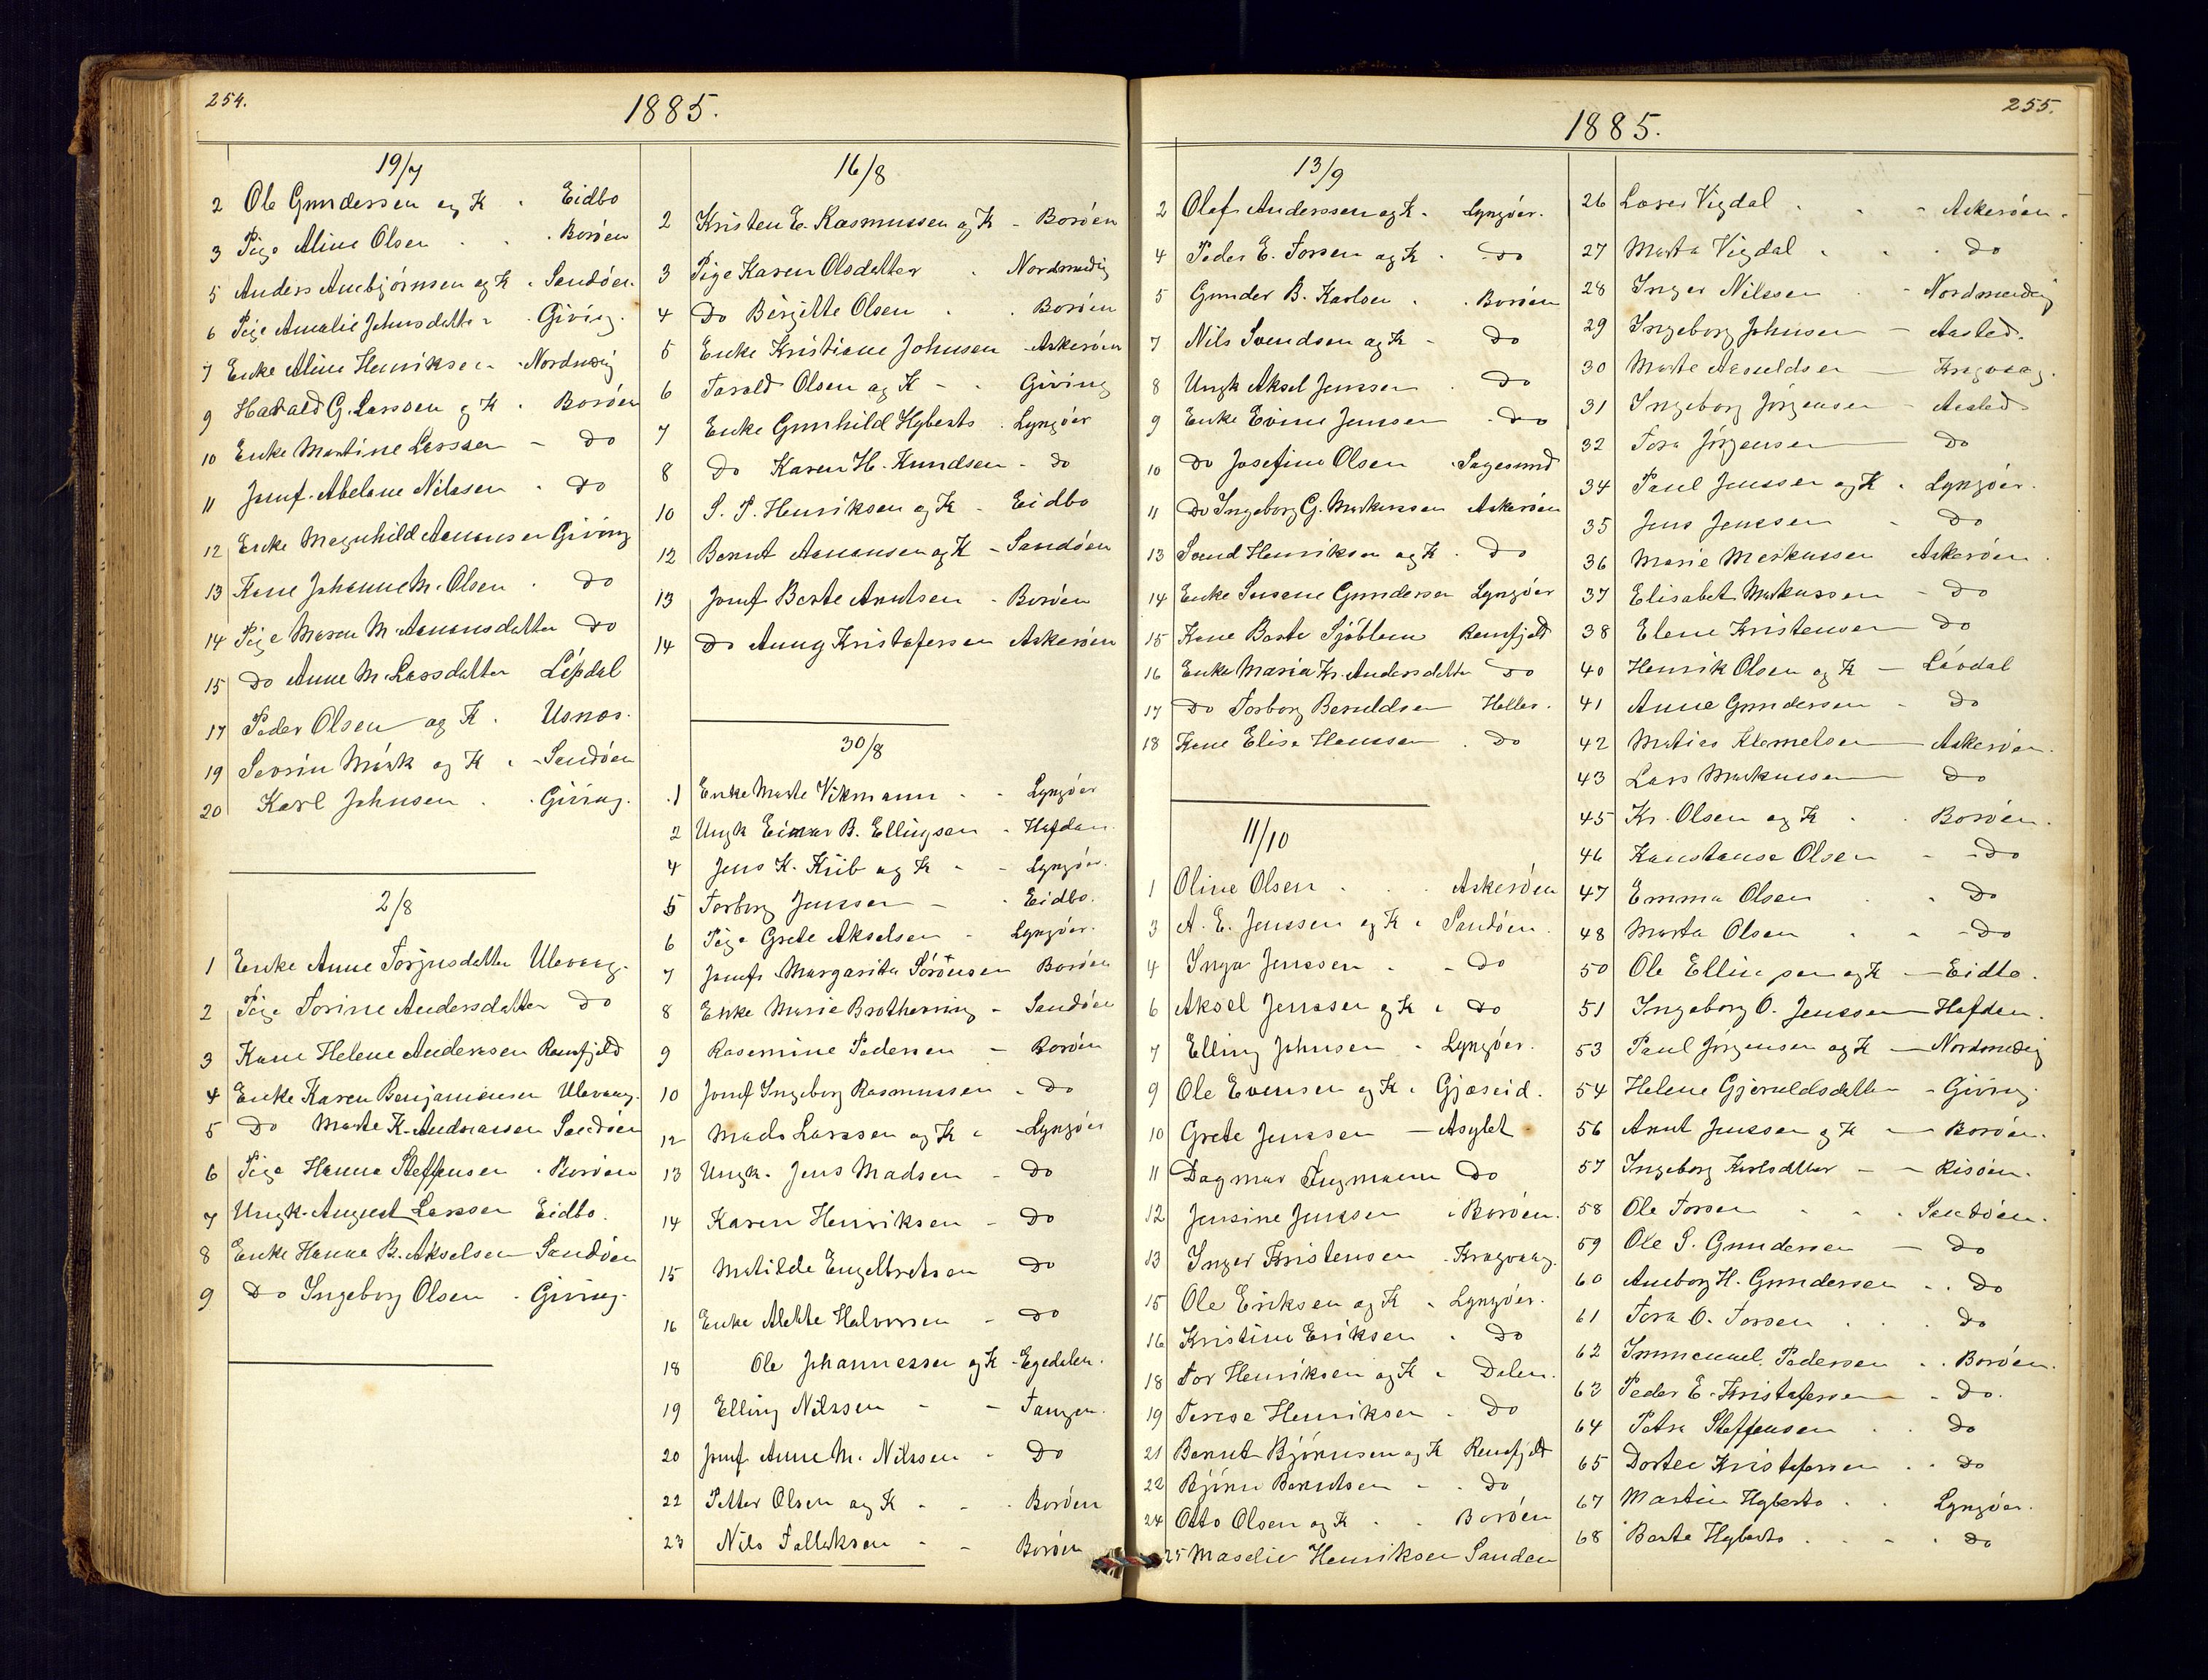 254.
1885.
19/7
2 Ole Gundersen og K. Eidbo
3 Pige Aline Olsen . . Borøen
5 Anders Anebjørnsen og K. Sandøen.
6 Pige Amalie Johnsdatter . Giving.
7 Enke Aline Henriksen . Nordmedig
9 Harald G. Larssen og K. Borøen
10 Enke Martine Larssen - Do
11 Jomf. Abelone Nilssen . Do
12 Enke Magnhild Aanonsen Giving
13 Kone Johanne M. Olsen . Do
14 Pige Maren M. Aanonsdatter Do
15 Do Anne M. Larsdatter Løvdal
17 Peder Olsen og K. Usnes.
19 Sevrin Mørk og K. - Sandøen
20 Karl Johnsen . . Giving.
2/8
1 Enke Anne Torjusdatter Ulevaag.
2 Pige Torine Andersdatter Do
3 Kone Helene Anderssen Ramsfjeld
4 Enke Karen Benjaminsen Ulevaag.
5 Do Marte K. Andreassen Sandøen
6 Pige Hanna Steffensen . Borøen
7 Ungk. August Larssen Eidbo.
8 Enke Hanna B. Akselsen Sandøen
9 Do Ingeborg Olsen . Giving.
16/8
2 Kristen E. Rasmussen og K - Borøen
3 Pige Karen Olsdatter . Nordmedig
4 Do Birgitte Olsen . . Borøen
5 Enke Kristiane Johnsen Askerøen
6 Tarald Olsen og K - . Giving
7 Enke Gunhild Hyberts . Lyngøer
8 Do Karen H. Knudsen - do
10 S. P. Henriksen og K - Eidbo
12 Bernt Aanonsen og K - Sandøen
13 Jomf Berte Knutsen - Borøen
14 Do Anny Kristofersen Askerøen
30/8
1 Enke Marte Vikmann . - Lyngøer
2 Ungk Einar B. Ellingsen - Hafdan.
4 Jens K. Krib og K - - Lyngøer.
5 Torborg Jenssen - . Eidbo.
6 Pige Grete Akselsen - Lyngøer.
7 Jomfr Margarita Sørensen Borøen
8 Enke Marie Brothering - Sandøen
9 Rasemine Pedersen - Borøen
10 Jomf Ingeborg Rasmussen . Do
12 Mads Larssen og K - Lyngøer
13 Ungk. Jens Madsen - Do
14 Karen Henriksen - Do
15 Matilde Engelbretsen Do
16 Enke Alette Halvorsen - Do
18 Ole Johannessen og K - Egedalen.
19 Elling Nilssen - - Tangen.
20 Jomf Anne M. Nilssen - Do
22 Petter Olsen og K - - . Borøen
23 Nils Tallaksen - - Borøen
255.
1885.
13/9
2 Olaf Anderssen og K. Lyngøer.
4 Peder E. Torsen og K . Do
5 Gunder B. Karlsen . . Borøen
7 Nils Svendsen og K - Do
8 Ungk Aksel Jenssen . Do
9 Enke Evine Jenssen . Do
10 Do Josefine Olsen . Sagesund
11 Do Ingeborg G. Markussen Askerøen
13 Svend Henriksen og K . Do
14 Enke Susane Gundersen Lyngøer
15 Kone Berte Sjøblom Ramsfjeld
16 Enke Maria Kr. Andersdatter Do
17 Do Torborg Beruldsen Holler.
18 Kone Elise Hanssen . Do
11/10
1 Oline Olsen . . . Askerøen
3 A. E. Jenssen og K . Sandøen.
4 Inga Jenssen . - Do
6 Aksel Jenssen og K . Do
7 Elling Johnsen - Lyngøer.
9 Ole Evensen og K . Gjæseid.
10 Grete Jenssen - Asylet
11 Dagmar Ingmann Do
12 Jensine Jenssen . Borøen.
13 Inger Kristensen . Kragvaag.
15 Ole Eriksen og K . Lyngøer.
16 Kristine Eriksen . Do
18 Tor Henriksen og K . Dalen.
19 Terese Henriksen . Do
21 Bernt Bjørnsen og K Ramsfjeld
22 Bjørn Berntsen - . Do
24 Otto Olsen og K . . Borøen
25 Maselie Henriksen Sanden
26 Lover Vigdal . . - Askerøen.
27 Marta Vigdal . . . Do
28 Inger Nilssen . - Nordmedig
29 Ingeborg Johnsen - Aasted.
30 Marte Aasuldsen - Kragvaag.
31 Ingeborg Jørgensen - Aasted
32 Tora Jørgensen - Do
34 Paul Jenssen og K . Lyngøer.
35 Jens Jenssen - Do
36 Marie Markussen Askerøen.
37 Elisabet Markussen - Do
38 Elene Kristensen - Do
40 Henrik Olsen og K - Løvdal
41 Anne Gundersen - Do
42 Matias Klemetsen - Askerøen.
43 Lars Markussen - Do
45 Kr. Olsen og K . . Borøen.
46 Konstanse Olsen - - Do
47 Emma Olsen . . Do
48 Marta Olsen . - - Do
50 Ole Ellingsen og K - Eidbo.
51 Ingeborg O. Jenssen - Hafden.
53 Paul Jørgensen og K - Nordmedig
54 Helene Gjeruldsdatter - Giving.
56 Knut Jenssen og K - - Borøen.
57 Ingeborg Karlsdatter - - Risøen.
58 Ole Torsen - . . Sandøen.
59 Ole S. Gundersen - Do
60 Amborg H. Gundersen . . Do
61 Tora O. Torsen . . . Do
62 Immanuel Pedersen . . Borøen.
63 Peder E. Kristofersen - . Do.
64 Petra Steffensen . . Do
65 Dortee Kristofersen . . Do
67 Martin Hyberts . . Lyngøer.
68 Berte Hyberts . . - . Do